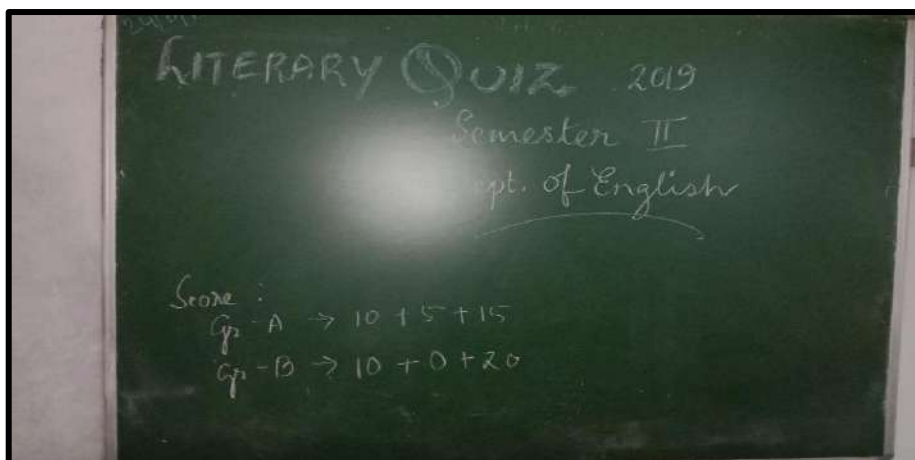 LITERARY QUIZ 2019
Semester II
ept. of English
Score :
Gr-A → 10 + 5 + 15
Gr-B → 10 + 0 + 20